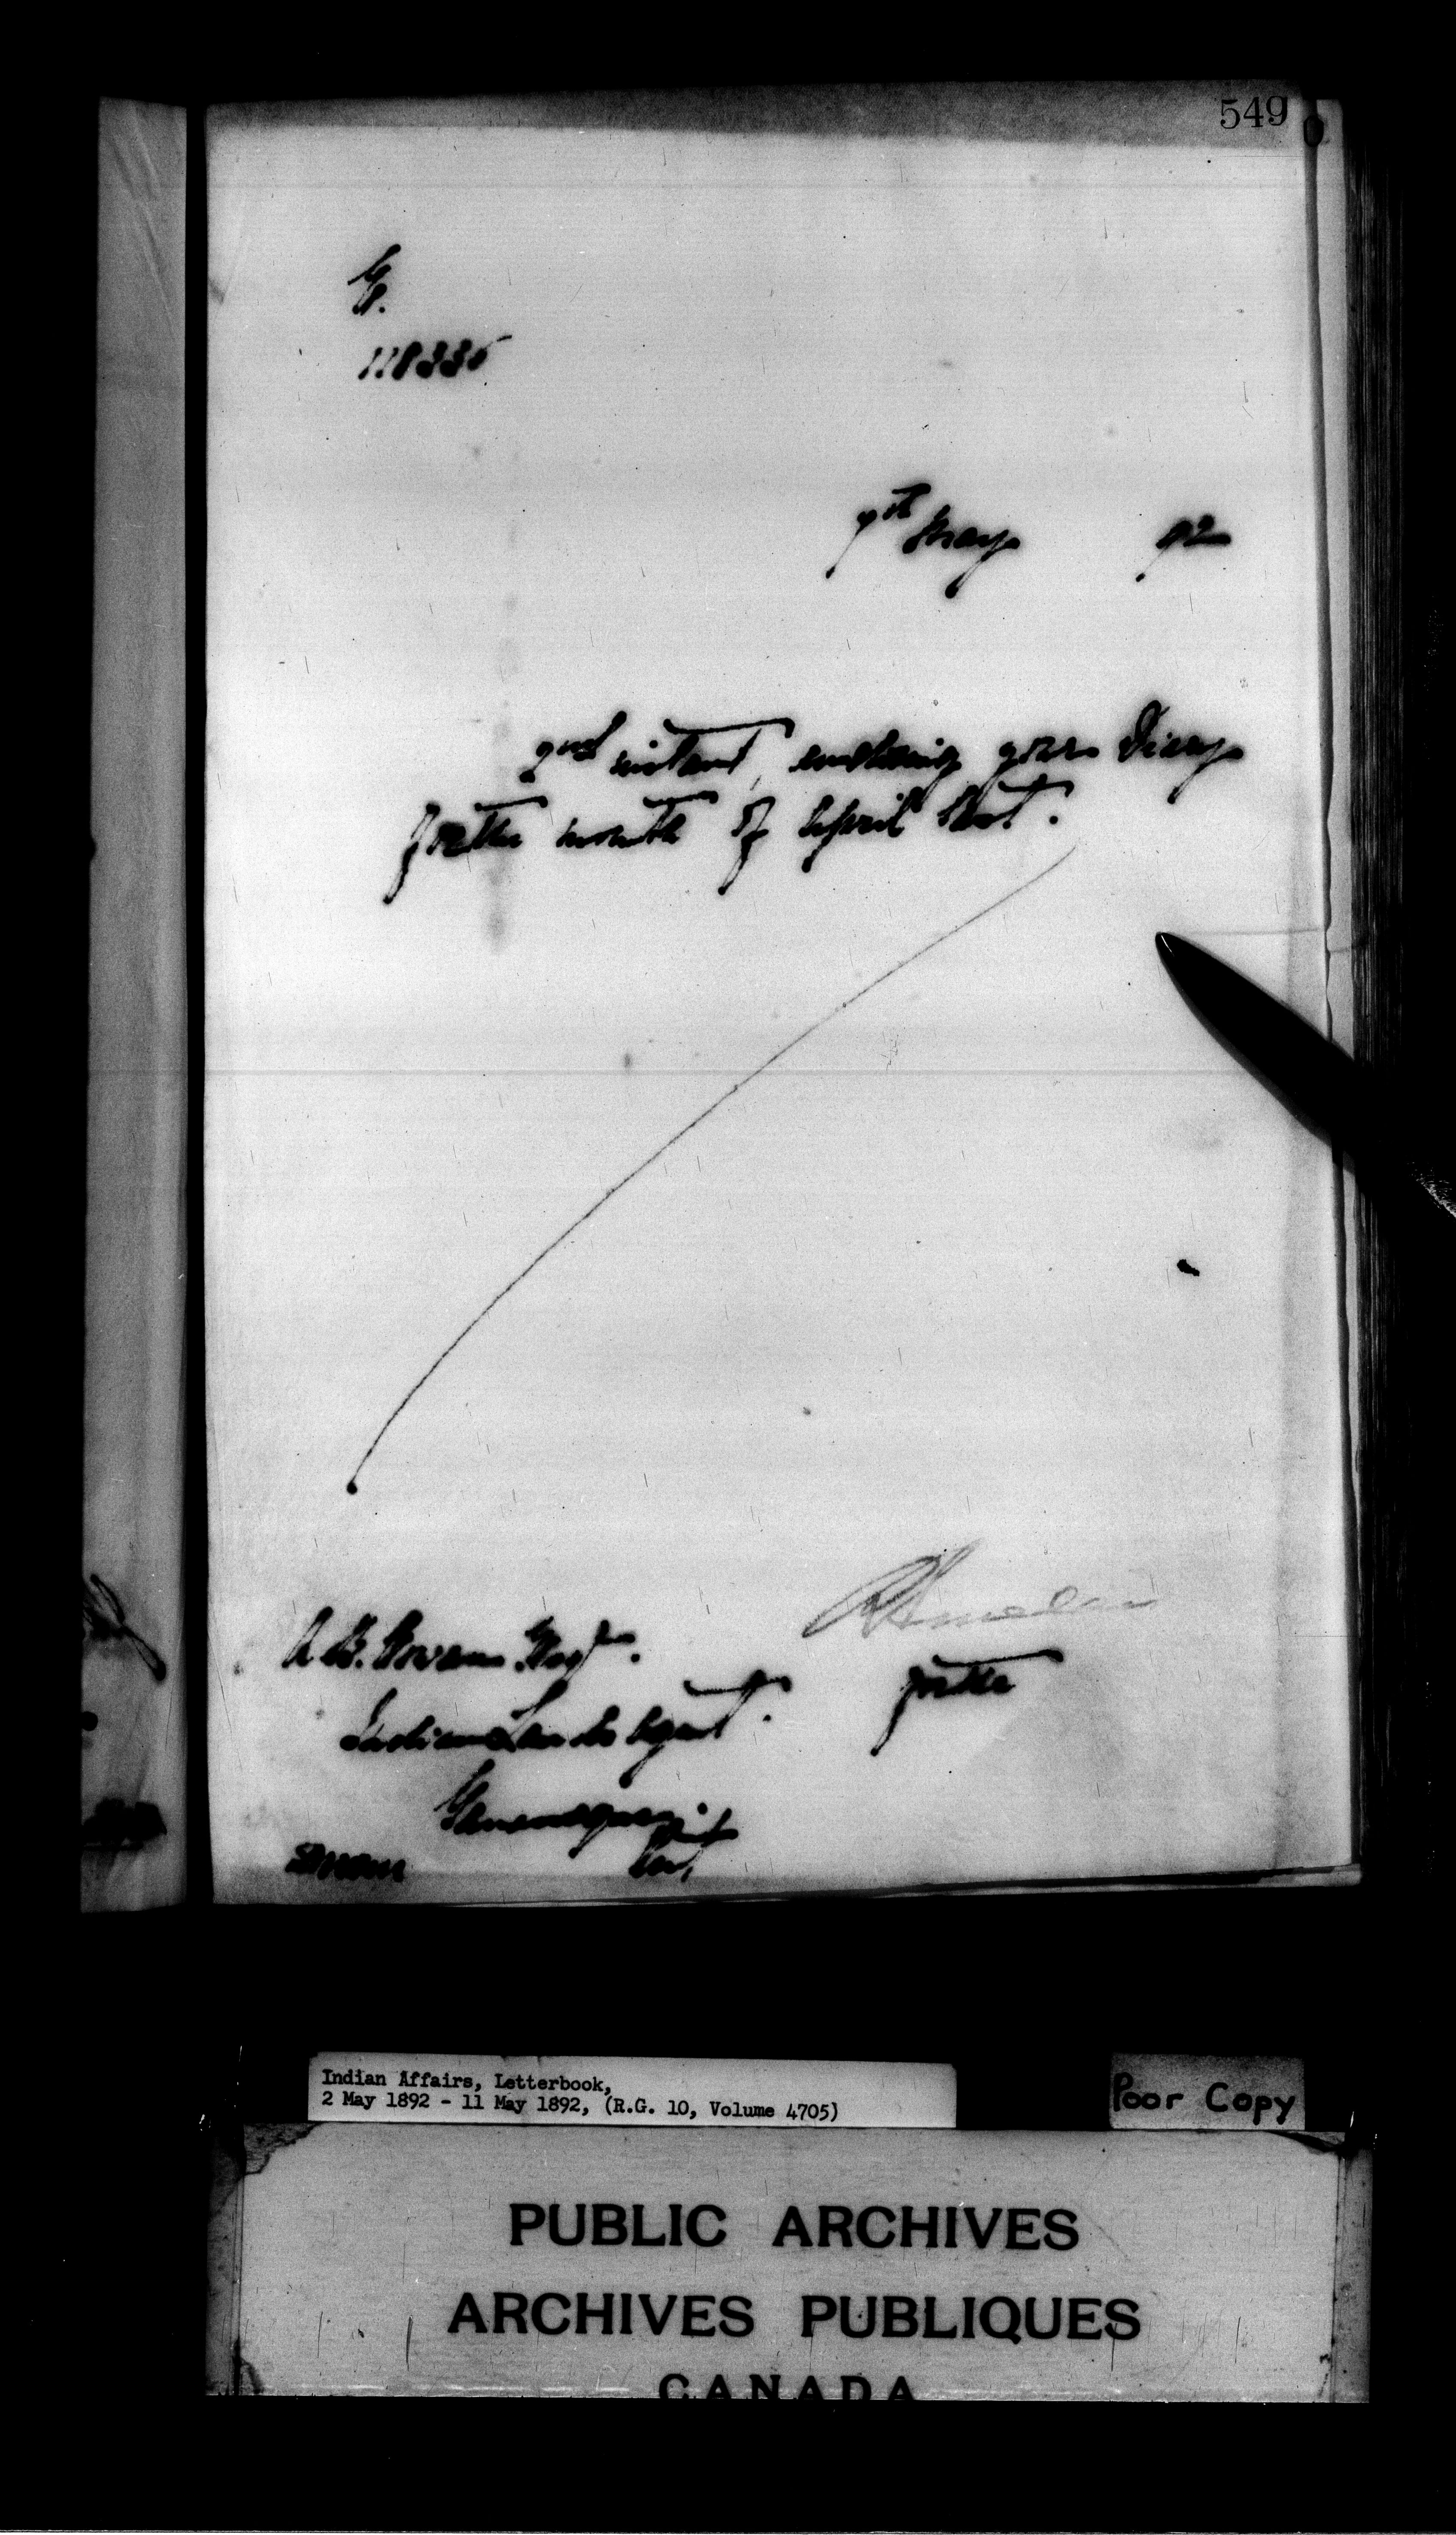 549
G.
118335
9th May 92
2nd instant, enclosing your Diary
for the month of April last.
A. G. Cowan Esqr.
for the
Indian Lands Agent.
Gananoque,
Ont
Indian Affairs, Letterbook,
2 May 1892 - 11 May 1892, (R.G. 10, Volume 4705)
Poor Copy
PUBLIC ARCHIVES
ARCHIVES PUBLIQUES
CANADA